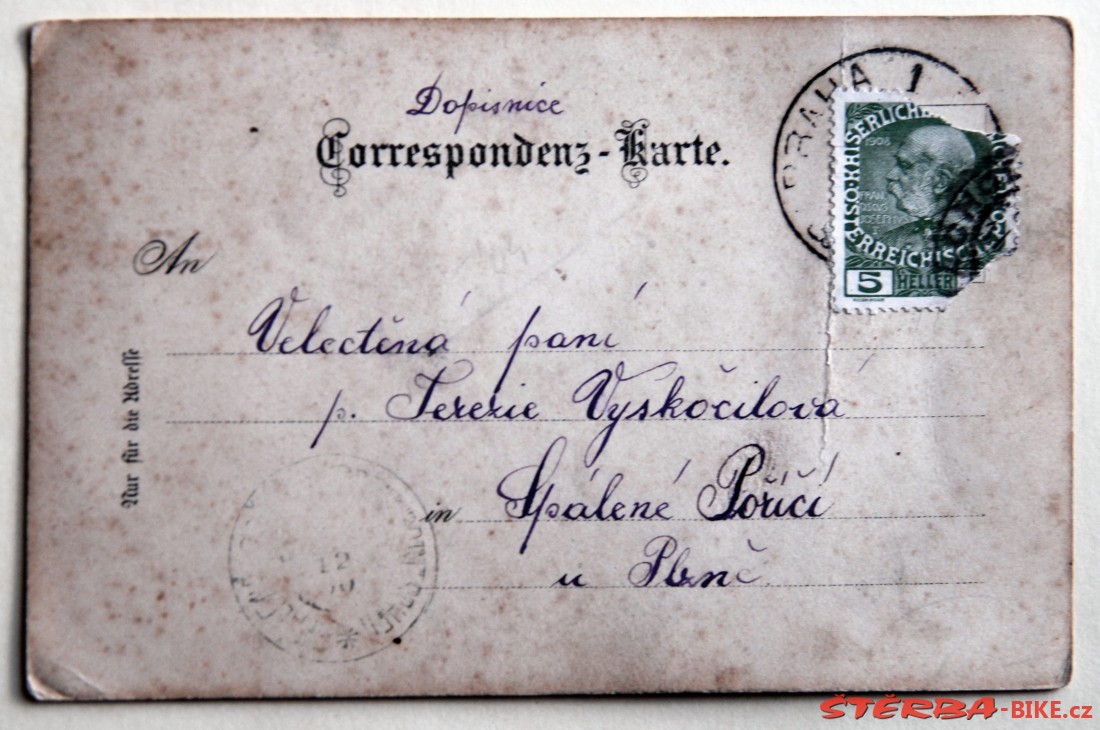 Dopisnice
Correspondenz-Karte.
PRAHA 1
1908
FRAN
CISCVS
JOSEPHVS
5 HELLER
An
Velectěná paní
p. Terezie Vyskočilová
in Spálené Poříčí
u Plzně
Nur für die Adresse
12
ŠTĚRBA-BIKE.cz